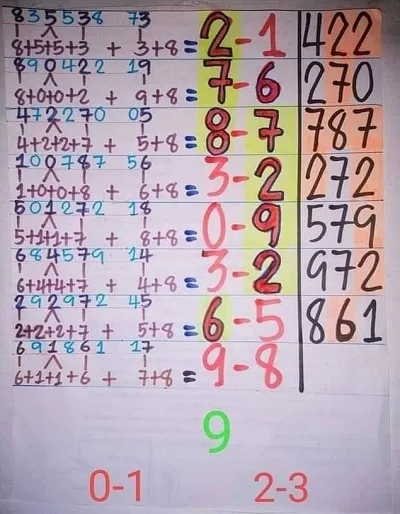 8 3 5 5 3 8 73
8+5+5+3 + 3+8 = 2-1 422
8 9 0 4 2 2 19
8+0+0+2 + 9+8 = 7-6 270
4 7 2 2 7 0 05
4+2+2+7 + 5+8 = 8-7 787
1 0 0 7 8 7 56
1+0+0+8 + 6+8 = 3-2 272
5 0 1 2 7 2 18
5+1+1+7 + 8+8 = 0-9 579
6 8 4 5 7 9 14
6+4+4+7 + 4+8 = 3-2 972
2 9 2 9 7 2 45
2+2+2+7 + 5+8 = 6-5 861
6 9 1 8 6 1 17
6+1+1+6 + 7+8 = 9-8
9
0-1 2-3